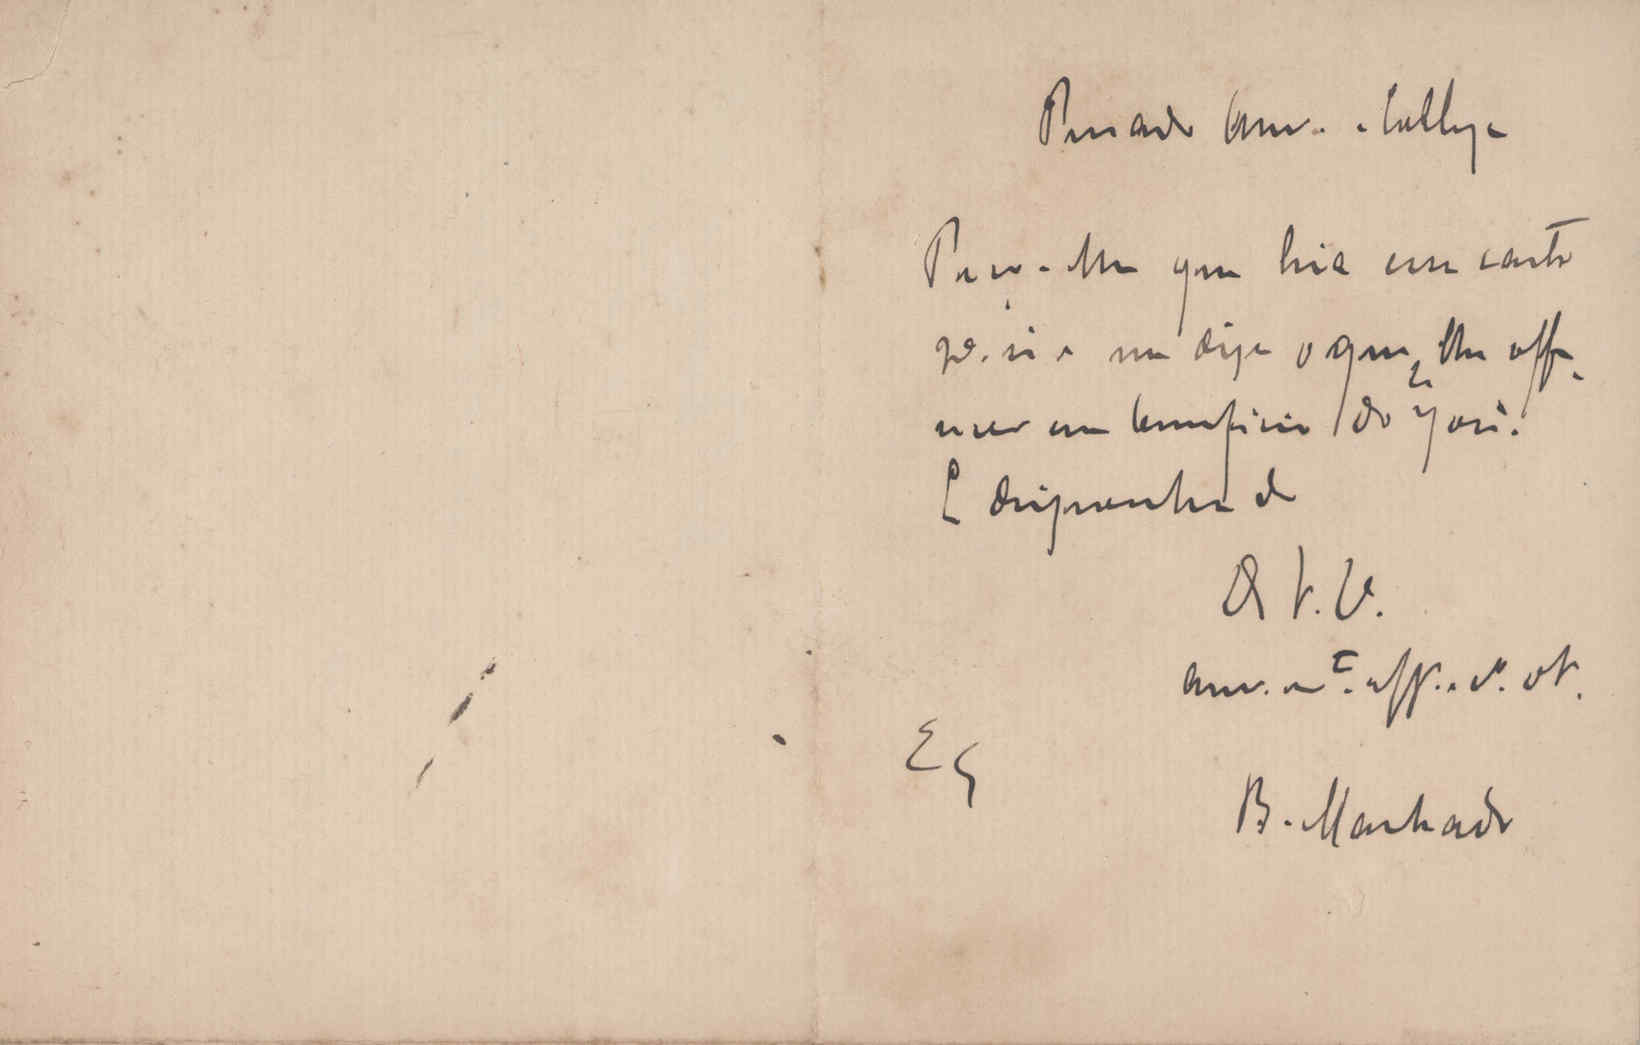 Presado Amo. e Collega
Peço-lhe que leia essa carta
e me diga o que se lhe offe-
recer em beneficio do José.
E disponha de
De V. V.
amo. mto. aff. e
B. Machado